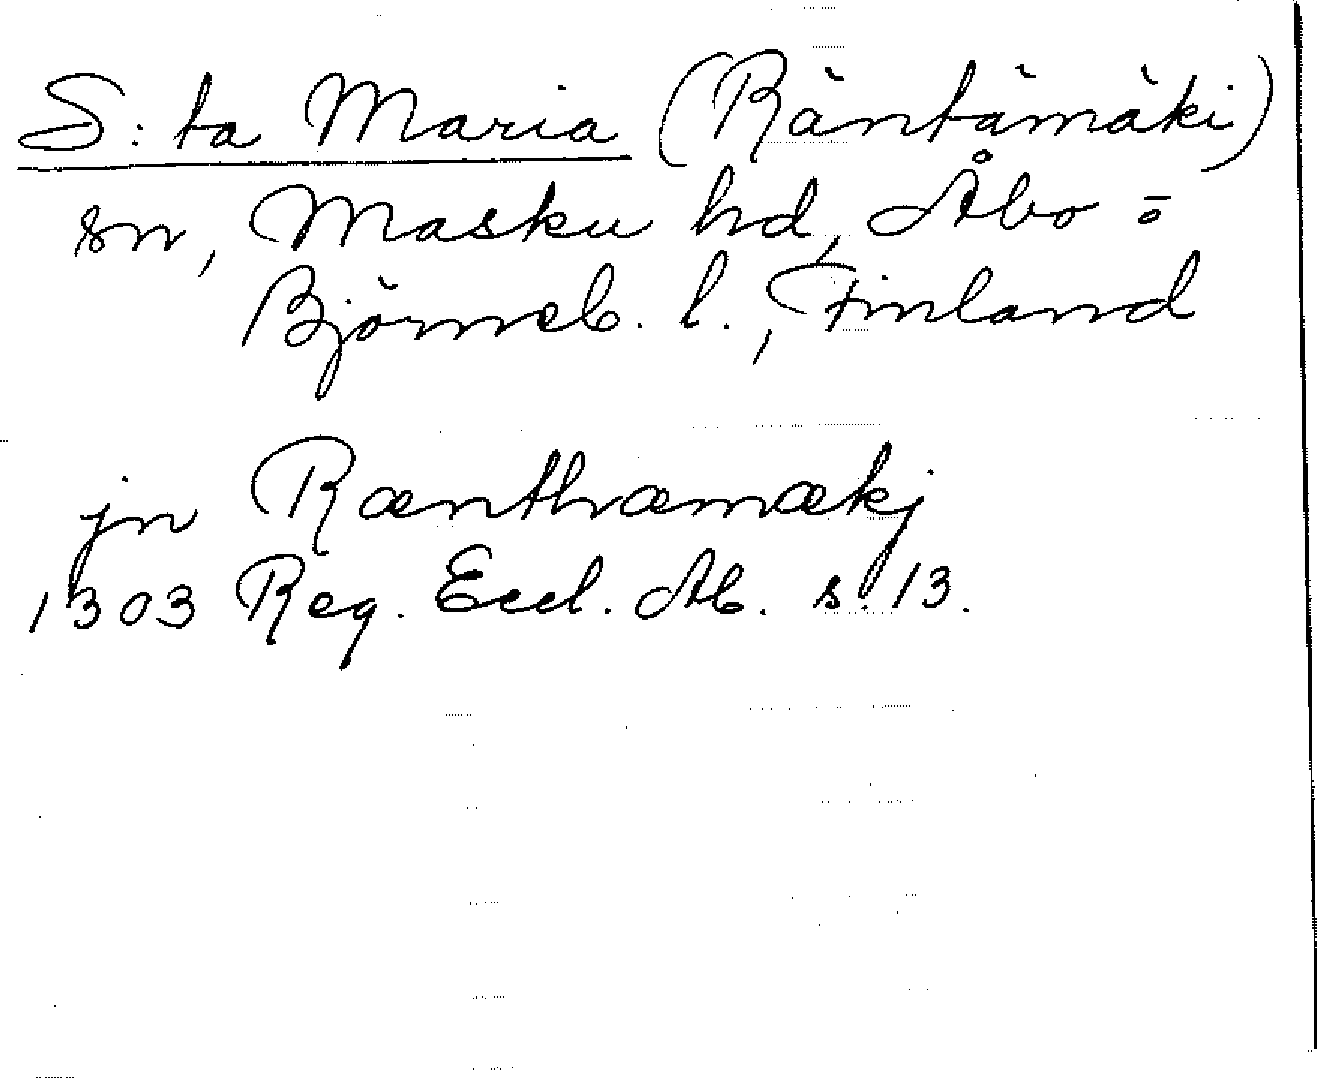 S:ta Maria (Räntämäki)
sn, Masku hd, Åbo =
Björneb. l., Finland
jn Rænthæmækj
1303 Reg. Eccl. Ab. s. 13.